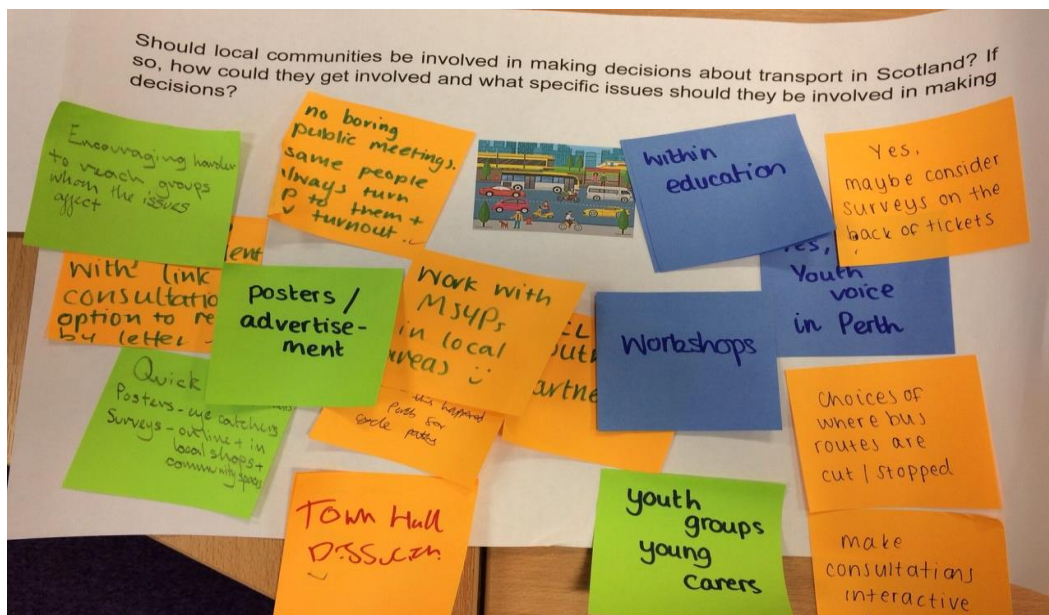 Should local communities be involved in making decisions about transport in Scotland? If
so, how could they get involved and what specific issues should they be involved in making
decisions?
Encouraging harder
to reach groups
whom the issues
affect
no boring
public meetings.
same people
always turn
to them +
turnout.
within
education
Yes,
maybe consider
surveys on the
back of tickets
With link
option to
by letter
posters /
advertise-
ment
Work with
MSYPs
in local
areas
Workshops
Youth
voice
in Perth
Quick
Posters - eye catchers
Surveys - outline + in
local shops +
community spaces
this happened
cycle paths
choices of
where bus
routes are
cut / stopped
Town Hall
youth
groups
young
carers
make
consultations
interactive